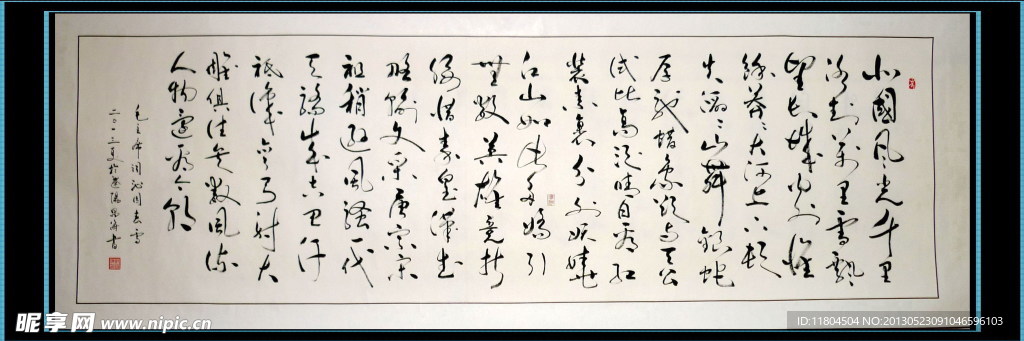 北國风光千里
冰封萬里雪飄
望长城内外惟
餘莽〻大河上下頓
失滔〻山舞銀蛇
原驰蜡象欲与天公
试比高须晴日看红
装素裹分外妖娆
江山如此多嬌引
無数英雄竞折
腰惜秦皇漢武
略输文采唐宗宋
祖稍逊風骚一代
天骄成吉思汗
祇識弯弓射大
雕俱往矣数風流
人物還看今朝
毛主席词沁园春雪
二〇一三夏於 書
昵享网 www.nipic.cn
ID:11804504 NO:20130523091046596103